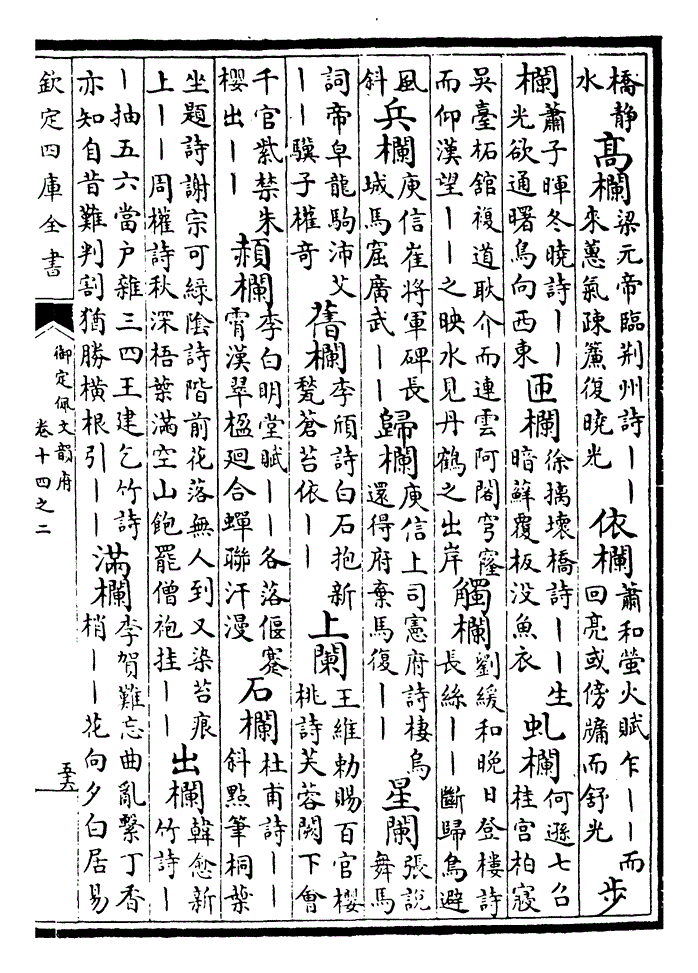 橋靜
水
高欄
梁元帝臨荆州詩丨丨
來蕙氣疎簾復曉光
依欄
蕭和螢火賦乍丨丨而
回亮或傍牖而舒光
步
欄
蕭子暉冬曉詩丨丨
光欲通曙鳥向西東
匝欄
徐摛壞橋詩丨丨生
暗蘚覆板没魚衣
虬欄
何遜七召
桂宮柏寢
吳臺柘館複道耿介而連雲阿閣穹窿
而仰漢望丨丨之映水見丹鶴之出岸
觸欄
劉緩和晚日登樓詩
長絲丨丨斷歸鳥避
風
斜
兵欄
庾信崔將軍碑長
城馬窟廣武丨丨
歸欄
庾信上司憲府詩棲烏
還得府棄馬復丨丨
星闌
張說
舞馬
詞帝皁龍駒沛艾
丨丨驥子權奇
舊欄
李頎詩白石抱新
甃蒼苔依丨丨
上闌
王維勅賜百官櫻
桃詩芙蓉闕下會
千官紫禁朱
櫻出丨丨
頳欄
李白明堂賦丨丨各落偃蹇
霄漢翠楹廻合蟬聯汗漫
石欄
杜甫詩丨丨
斜點筆桐葉
坐題詩謝宗可緑陰詩階前花落無人到又染苔痕
上丨丨周權詩秋深梧葉滿空山飽罷僧袍挂丨丨
出欄
韓愈新
竹詩丨
丨抽五六當户雜三四王建乞竹詩
亦知自昔難判割猶勝横根引丨丨
滿欄
李賀難忘曲亂繫丁香
梢丨丨花向夕白居易
欽定四庫全書
御定佩文韻府
卷十四之二
五六